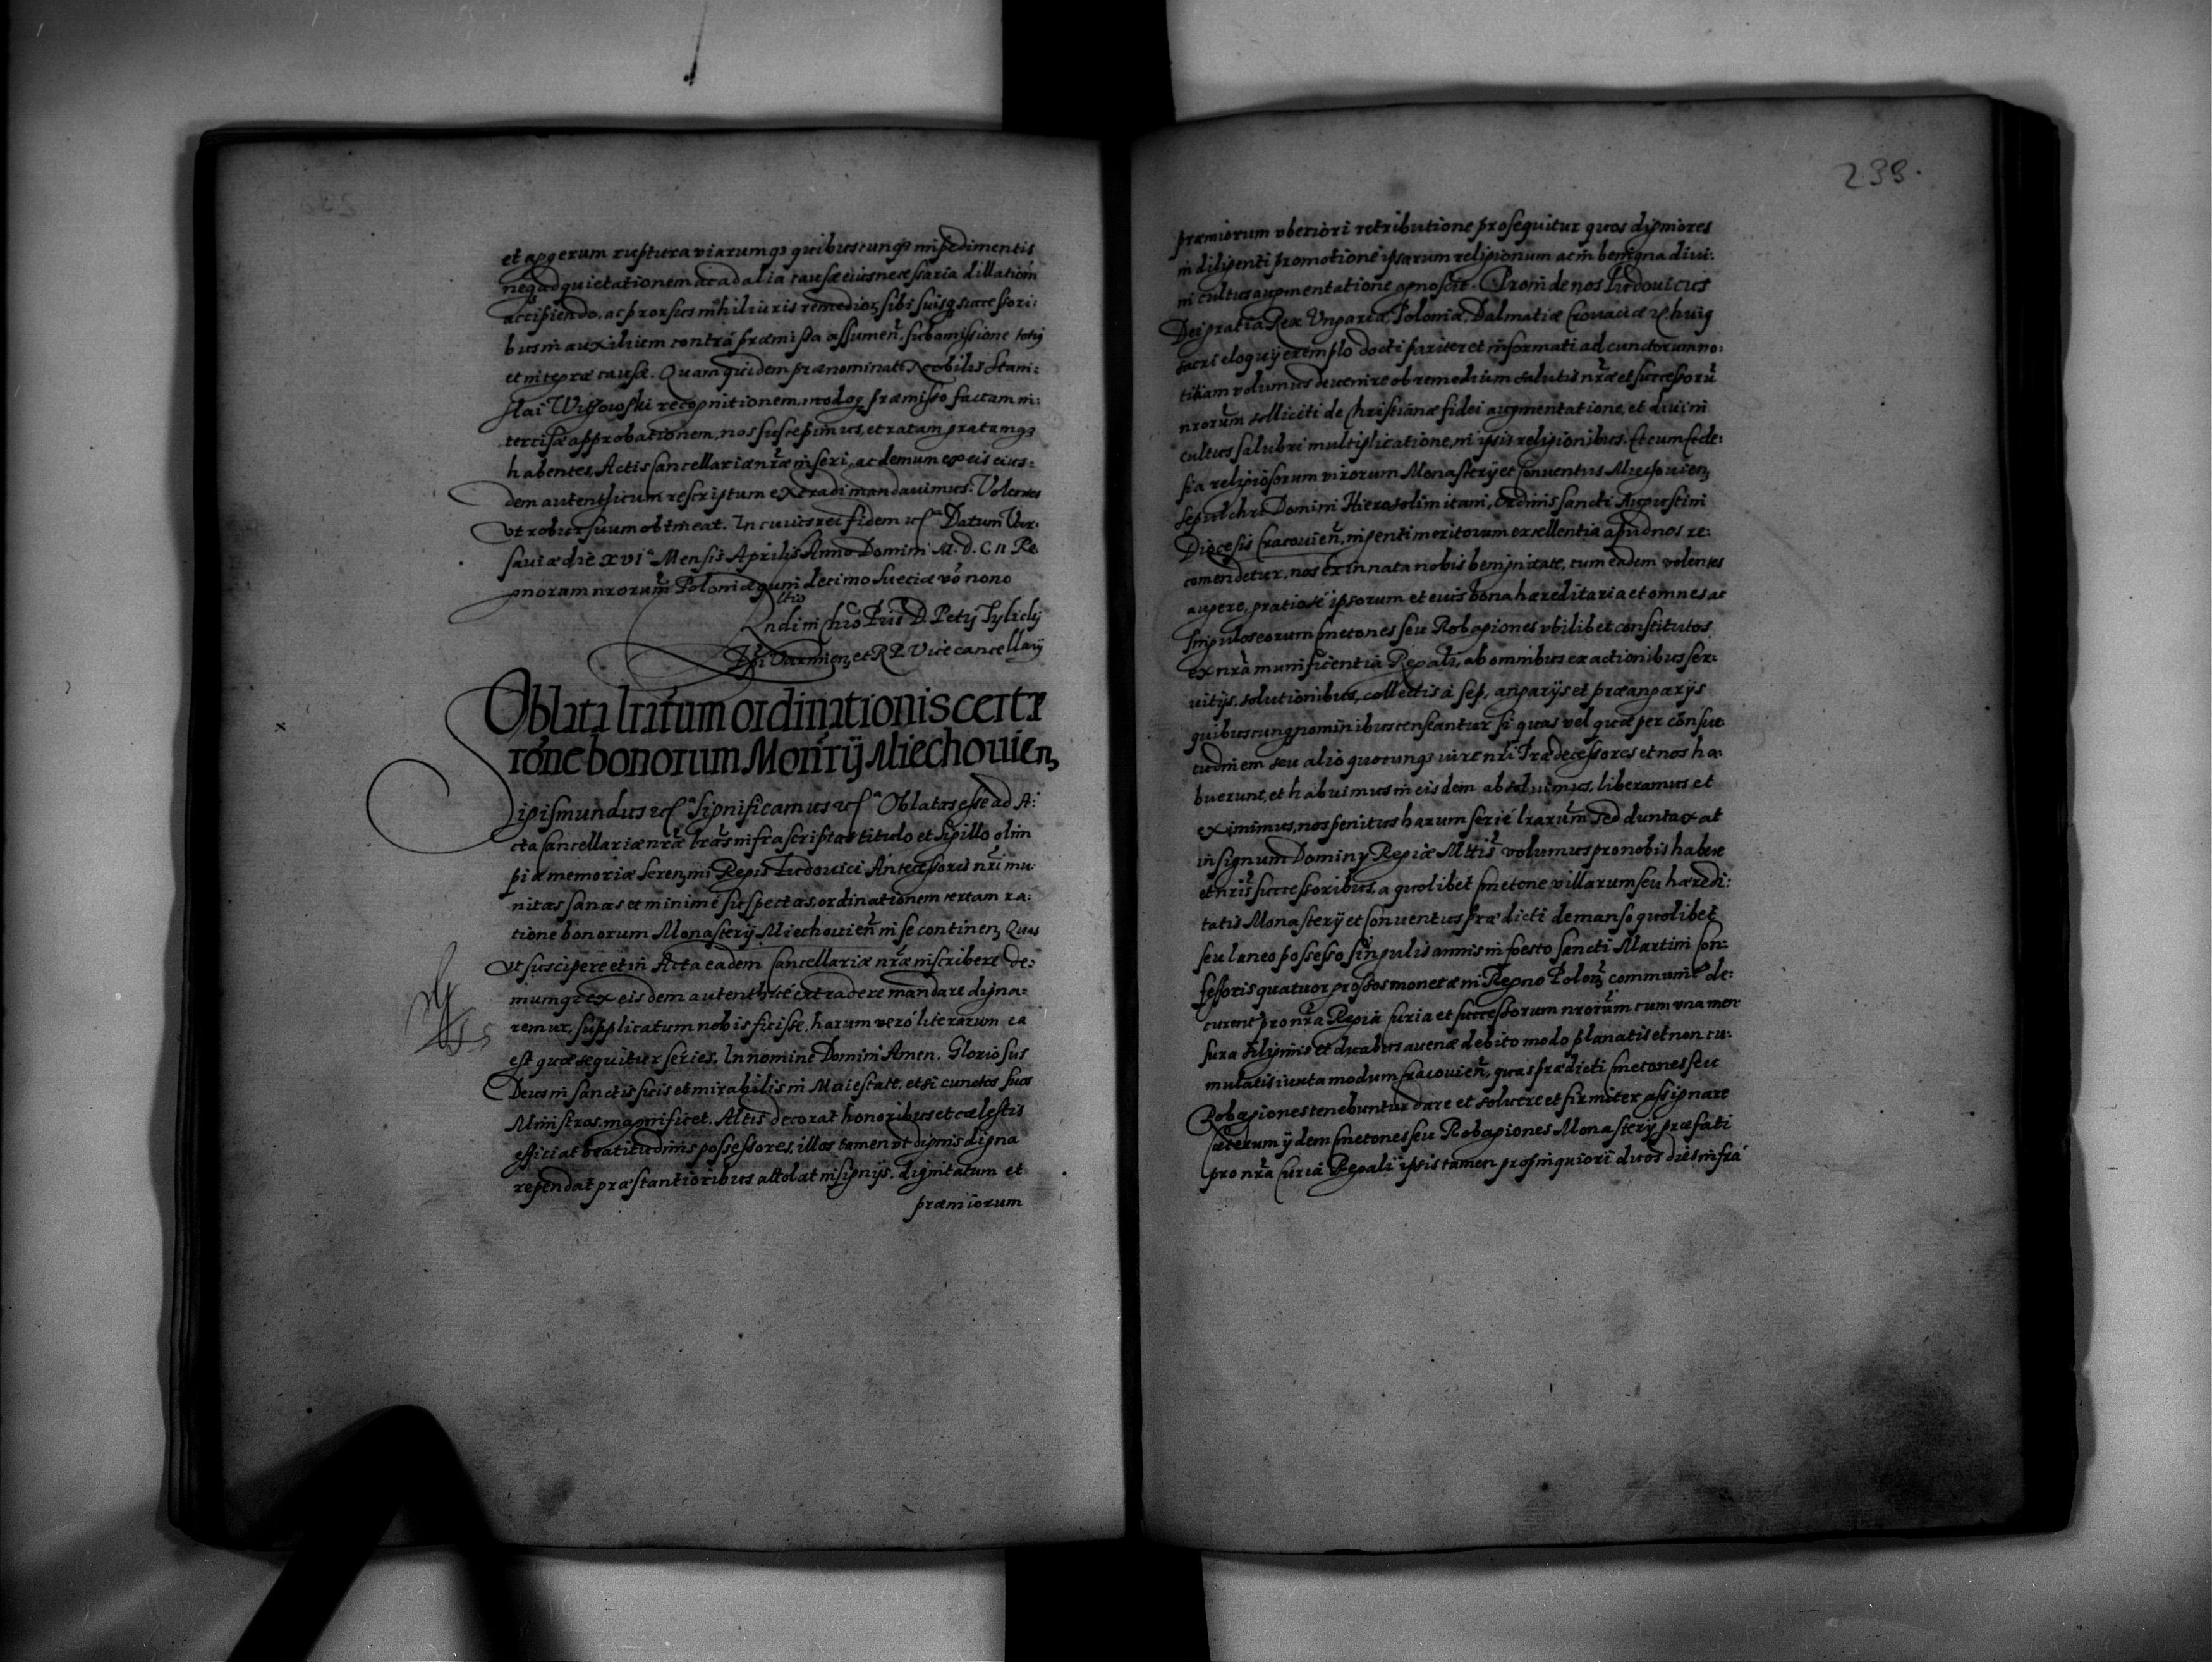 et aggerum ruptura viarumq3 quibuscunq3 impedimentis
neq3 ad quietationem ac ad alia causæ eius necessaria dillationem
accipiendo, ac prorsus nihil iuris remedior3 sibi suisq3 successori:
bus in auxilium contrà præmissa assumen̄. sub amissione totiꝰ
et integræ causæ. Quam quidem prænominati Nobilis Stani:
slai Witowski recognitionem, modoq3 præmisso factam in:
tercisæ approbationem, nos suscepimus, et ratam gratamq3
habentes, Actis Cancellariæ nr̄æ inseri, ac demum ex eis eius:
dem autenthicum rescriptum extradi mandauimus: Volentes
vt robur suum obtineat. In cuius rei fidem etcᵃ Datum Var:
sauiæ die XVIᵃ Mensis Aprilis Anno Domini M.D.CII Re
gnorum nrorum̄ Poloniæ quin decimo Sueciæ vō nono
Rndi in Chro Pris D. Petri Tylicky
Epi Varmien3 et R P. Vicecancellarij
Oblata lrārum ordinationis certæ
rōne bonorum Monrīj Miechouien3
Sigismundus etcᵃ Significamus etcᵃ Oblatas esse ad A:
cta Cancellariæ nr̄æ lrās infrascriptas titulo et sigillo olim
piæ memoriæ Seren3mi Regis Ludouici Antecessoris nrī mu
nitas sanas et minimè suspectas, ordinationem certam ra:
tione bonorum Monasterij Miechouien̄ in se continen3 Quas
vt suscipere et in Acta eadem Cancellariæ nr̄æ inscribere de:
mumq3 ex eisdem autenthicè extradere mandare digna:
remur, supplicatum nobis fuisse, harum verò literarum ea
est quæ sequitur series. In nomine Domini Amen. Gloriosus
Deus in sanctis suis et mirabilis in Maiestate, etsi cunctos suos
Ministros, magnificet. Altis decorat honoribus et cælestis
efficiat beatitudinis possessores, illos tamen vt dignis digna
rependat præstantioribus attolat insignijs. dignitatum et
præmiorum
239.
præmiorum vberiori retributione prosequitur quos digniores
in diligenti promotione ipsarum religionum ac in benigna diui:
ni cultus augmentatione agnoscit. Proinde nos Ludouicus
Dei gratia Rex Vngariæ, Poloniæ, Dalmatiæ Crouaciæ etc. huiꝰ
sacri eloquij exemplo docti pariter et informati ad cunctorum no:
titiam volumus deuenire ob remedium salutis nr̄æ et successorū
nrorum̄ solliciti de Christianæ fidei augmentatione, et diuini
cultus salubri multiplicatione, in ipsis religionibus. Et cum Eccle:
sia religiosorum virorum Monasterij et Conuentus Miechouien3
Sepulchri Domini Hierosolimitani, Ordinis sancti Augustini
Diocesis Cracouien̄, ingenti meritorum excellentia apud nos re:
comendetur, nos ex innata nobis benignitate, eum eadem volentes
augere, gratiosè ipsorum et eius bona hæreditaria et omnes ac
singulos eorum Cmetones seu Robagiones vbilibet constitutos
ex nrā munificentia Regali, ab omnibus exactionibus ser:
uitijs, solutionibus, collectis à sep, angarijs et præangarijs
quibuscunq3 nominibus censeantur si quas vel quæ per cōnsue
tudinem seu alio quocunq3 iure nrī Prædecessores et nos ha:
buerunt, et habuimus in eisdem absoluimus, liberamus et
eximimus, nos penitus harum seriè lrarum̄ Sed duntaxat
in signum Dominy Regiæ Mttis volumus pro nobis habere
et nris̄ successoribus, a quolibet Cmetone villarum seu hæredi:
tatis Monasterij et Conuentus prædicti de manso quolibet
seu laneo possesso singulis annis in foesto sancti Martini Con:
fessoris quatuor grossos monetæ in Regno Polon3 communiter de:
curent̄ pro nrā Regia Curia et successorum nrorum̄ cum vna men
sura siliginis et duabus auenæ debito modo planatis et non cu:
mulatis iuxta modum Cracouien̄, quas prædicti Cmetones seu
Robagiones tenebuntur dare et soluere et firmiter assignare
Cæterum ijdem Cmetones seu Robagiones Monasterij præfati
pro nrā Curia Regali ipsis tamen propinquiori duos dies infrà